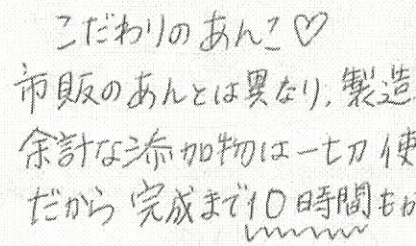 こだわりのあんこ♡
市販のあんとは異なり、製造
余計な添加物は一切使
だから完成まで10時間もか